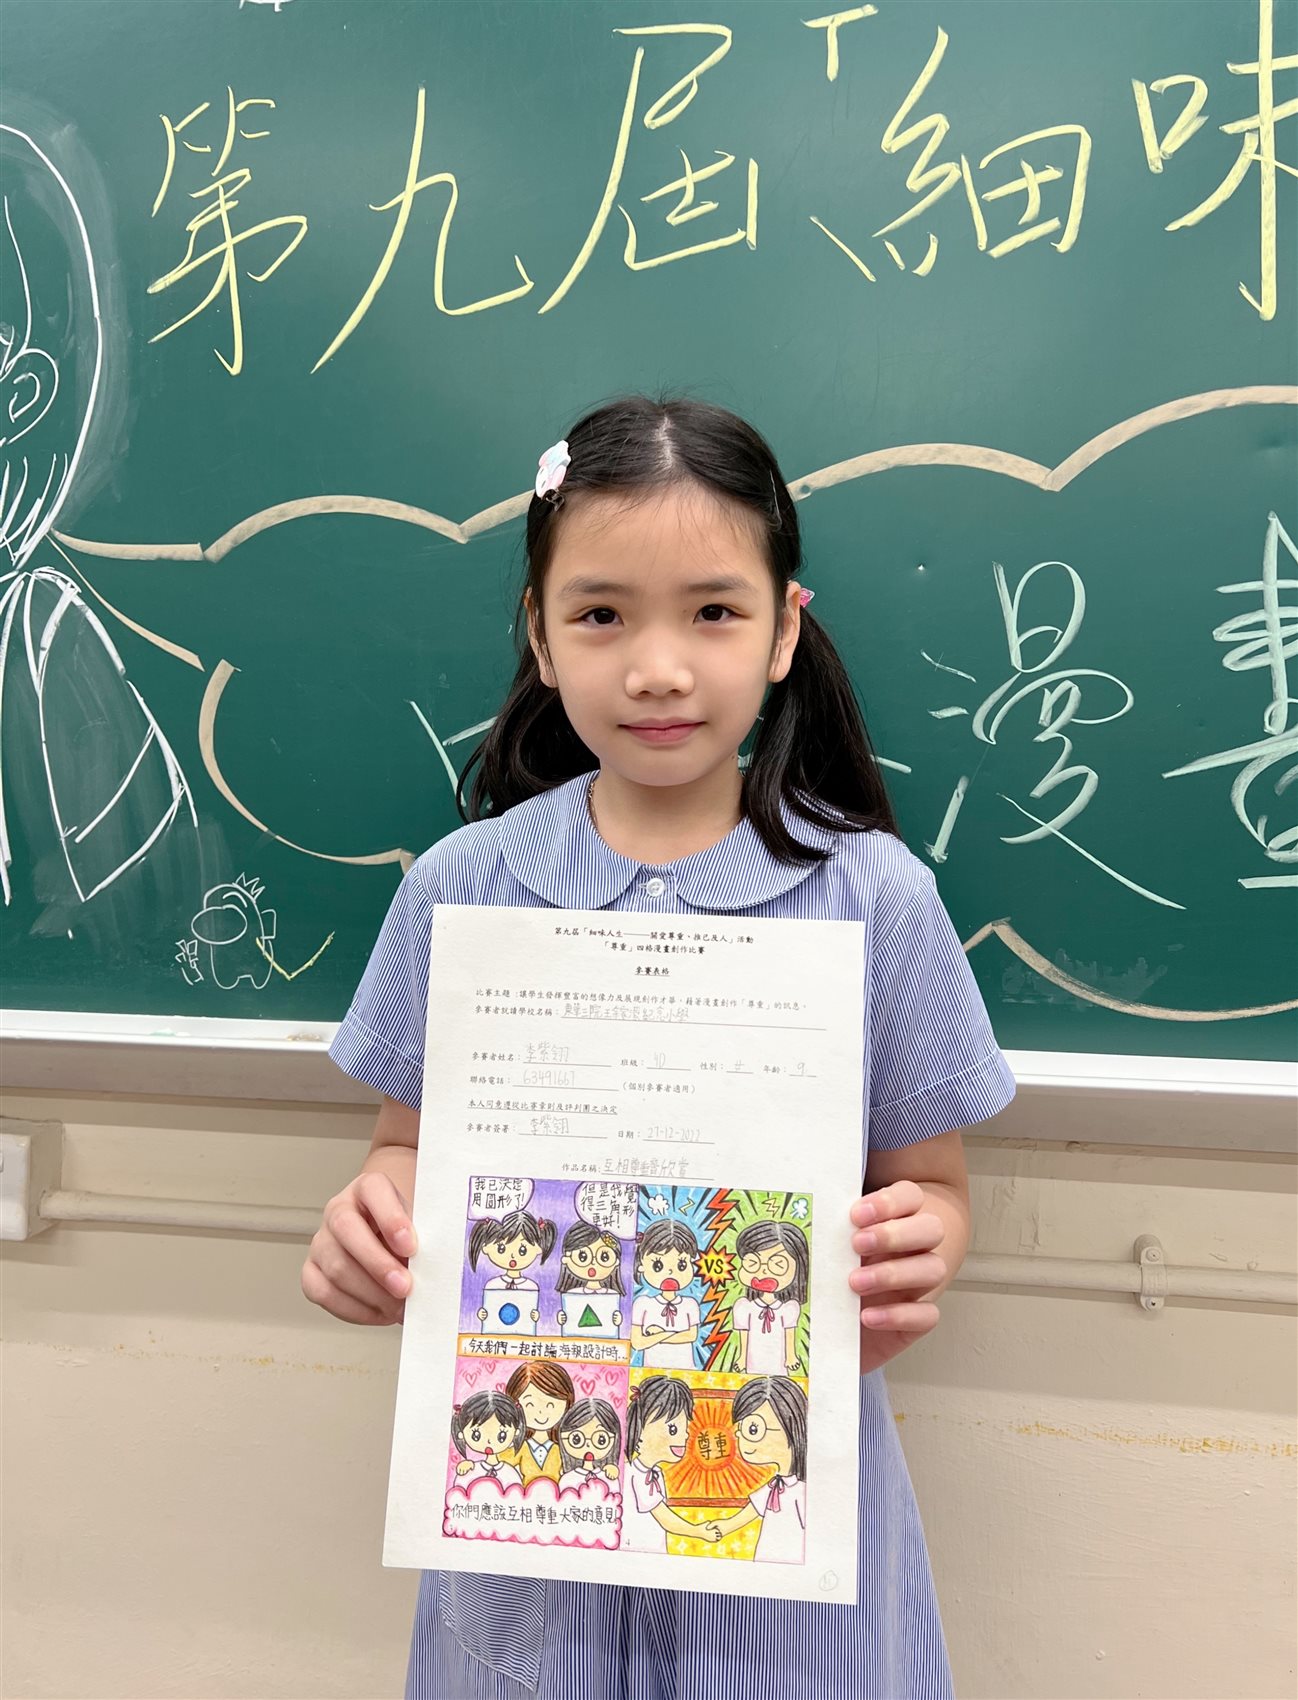 第九屆「細味
漫畫
第九屆「細味人生———關愛尊重，推己及人」活動
「尊重」四格漫畫創作比賽
參賽表格
比賽主題：讓學生發揮豐富的想像力及展現創作才華，藉著漫畫創作「尊重」的訊息。
參賽者就讀學校名稱：東華三院王余家潔紀念小學
參賽者姓名：李紫翎 班級：4D 性別：女 年齡：9
聯絡電話：63491667 （個別參賽者適用）
本人同意遵從比賽章則及評判團之決定
參賽者簽署：李紫翎 日期：27-12-2022
作品名稱：互相尊重齊欣賞
我已決定
用圓形了!
但是我覺
得三角形
更好!
今天我們一起討論海報設計時...
VS
你們應該互相尊重大家的意見!
3
尊重
4